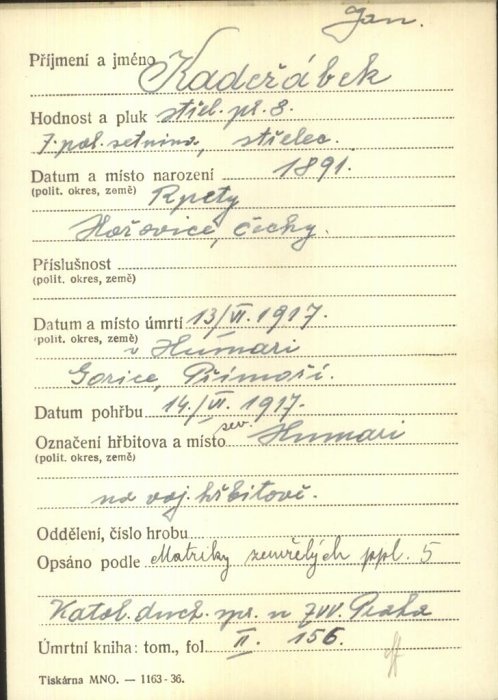 Jan.
Příjmení a jméno Kadeřábek
Hodnost a pluk střel. pl. 8.
7. pol. setnina, střelec.
Datum a místo narození 1891.
(polit. okres, země) Rpety
Hořovice, Čechy.
Příslušnost
(polit. okres, země)
Datum a místo úmrtí 13/VI. 1917.
(polit. okres, země) v Humari
Gorice, Přímoří.
Datum pohřbu 14./VI. 1917.
Označení hřbitova a místo sev. Humari
(polit. okres, země)
na voj. hřbitově.
Oddělení, číslo hrobu
Opsáno podle Matriky zemřelých ppl. 5
Katol. duch. spr. u ZVV. Praha
Úmrtní kniha: tom., fol. II. 156.
Tiskárna MNO. — 1163-36.